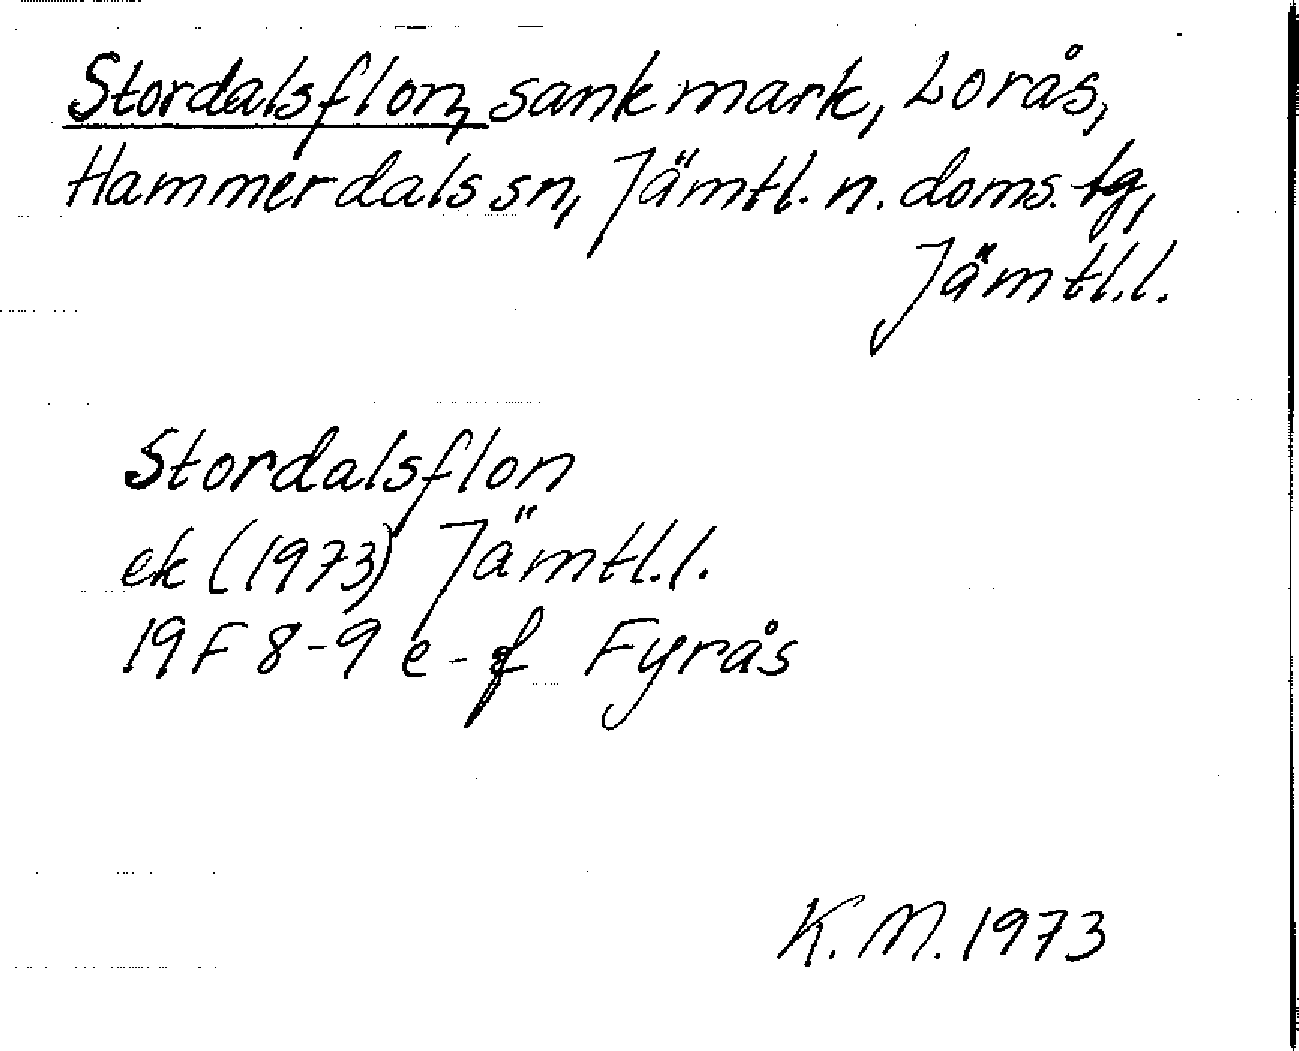 Stordalsflon, sankmark, Lorås,
Hammerdals sn, Jämtl. n. doms. tg,
Jämtl.l.
Stordalsflon
ek (1973) Jämtl.l.
19F 8-9 e-f Fyrås
K.M. 1973